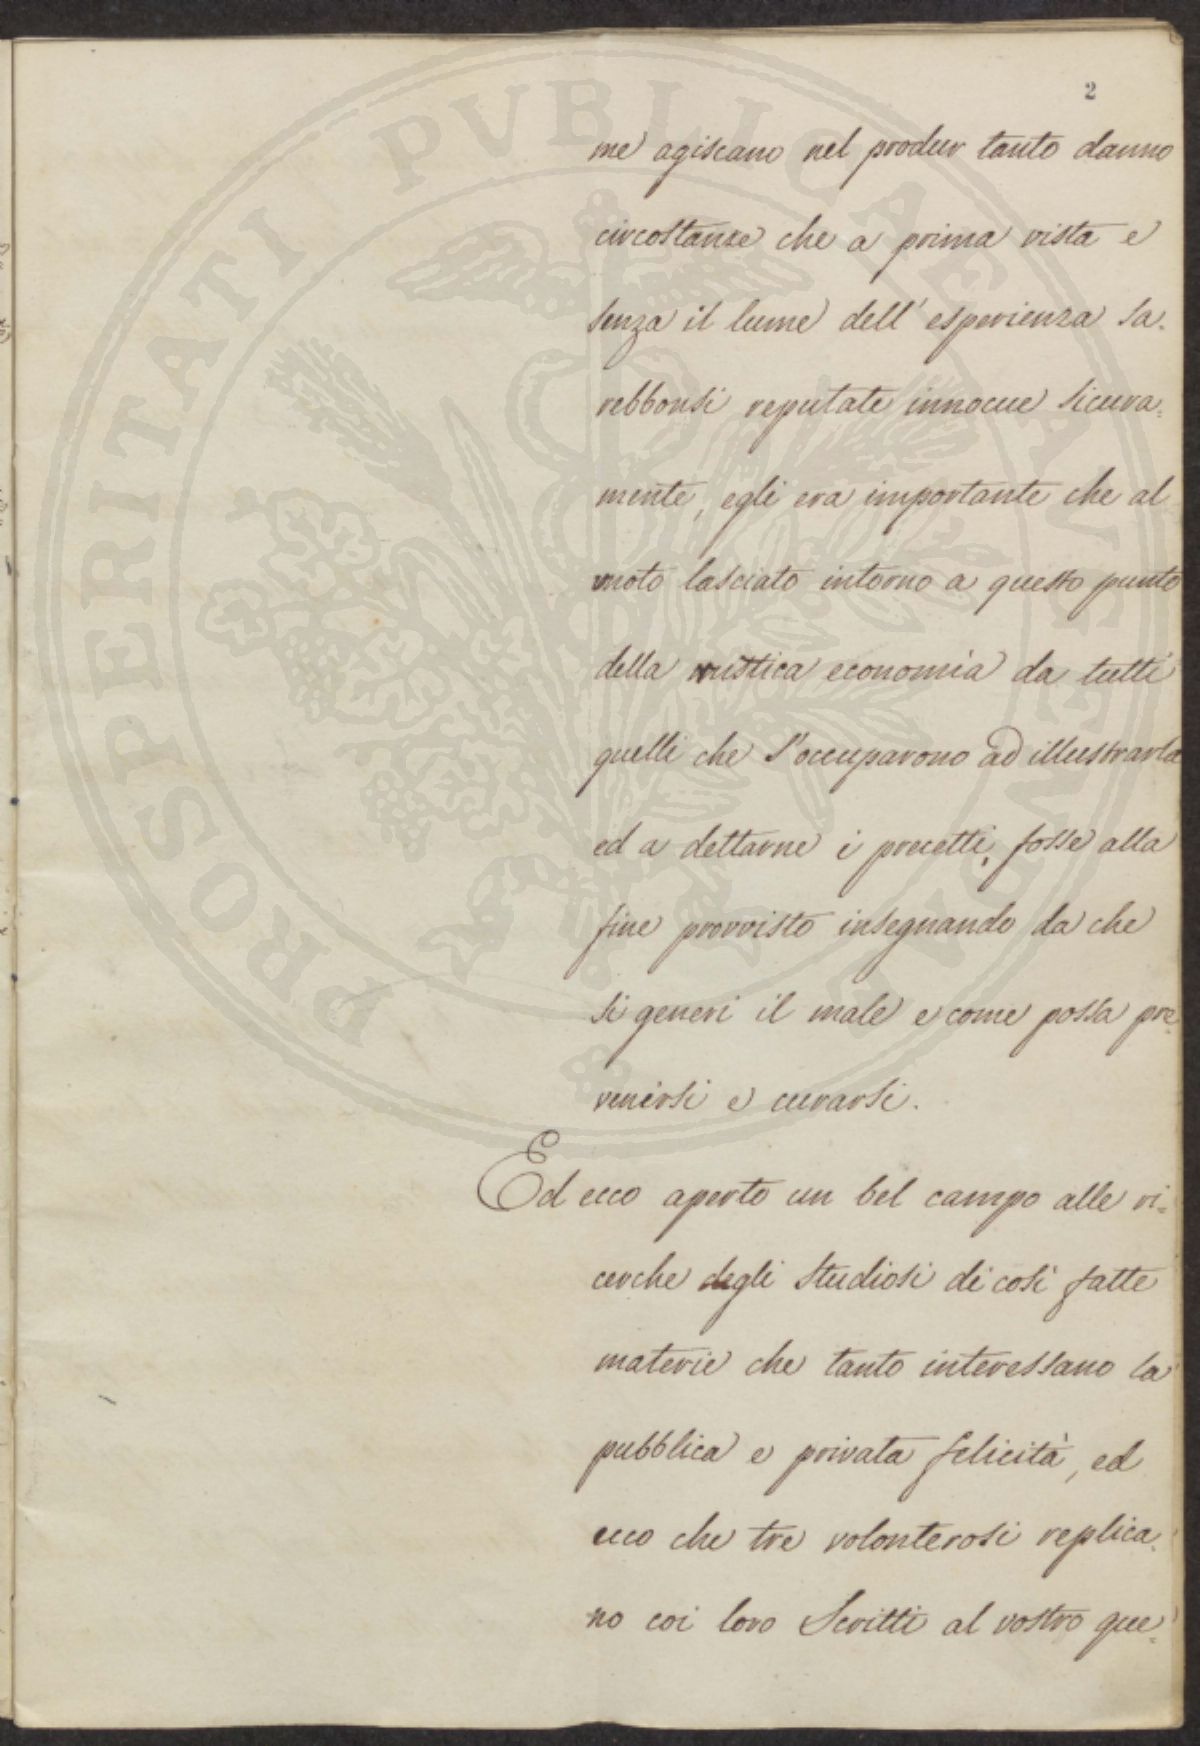 2
me agiscano nel produr tanto danno
circostanze che a prima vista e
senza il lume dell' esperienza sa=
rebbonsi reputate innocue sicura=
mente, egli era importante che al
vuoto lasciato intorno a questo punto
della rustica economia da tutti
quelli che s'occuparono ad illustrarla
ed a dettarne i precetti, fosse alla
fine provvisto insegnando da che
si generi il male e come possa pre=
venirsi e curarsi.
Ed ecco aperto un bel campo alle ri=
cerche degli studiosi di così fatte
materie che tanto interessano la
pubblica e privata felicità, ed
ecco che tre volonterosi replica=
no coi loro Scritti al vostro que=
PROSPERITATI PVBLICAE AVGENDAE